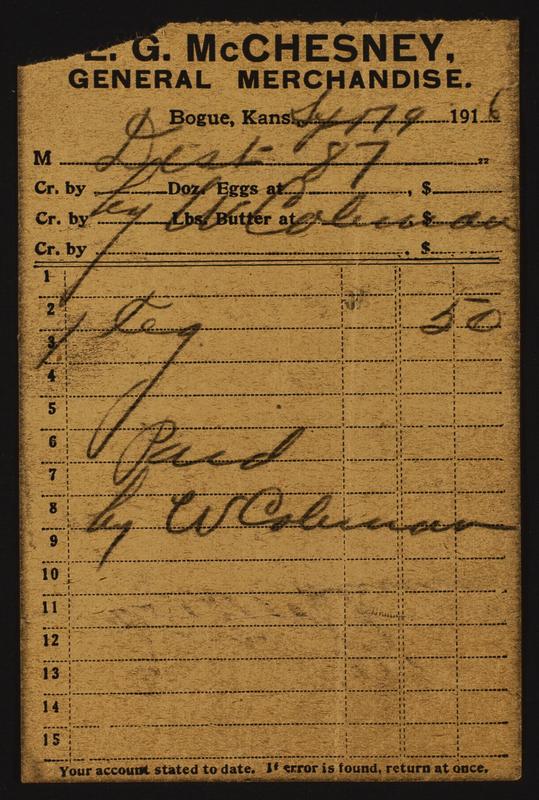 E. G. McCHESNEY,
GENERAL MERCHANDISE.
Bogue, Kans. 1916
M Dist 87
Cr. by Doz. Eggs at , $
by W Coleman
Cr. by Lbs. Butter at , $
Cr. by , $
1
2
1 Keg 50
3
4
5
6
Paid
7
8
by W Coleman
9
10
11
12
13
14
15
Your account stated to date. If error is found, return at once.